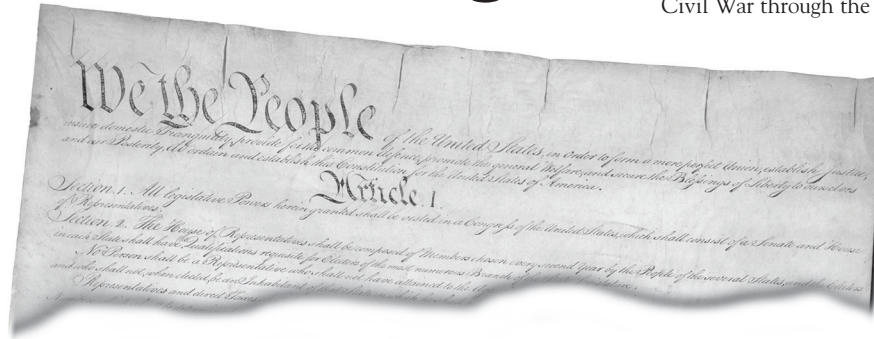 Civil War through the
We the People of the United States, in Order to form a more perfect Union, establish Justice,
insure domestic Tranquility, provide for the common defence, promote the general Welfare, and secure the Blessings of Liberty to ourselves
and our Posterity, do ordain and establish this Constitution for the United States of America.
Article. I.
Section. 1. All legislative Powers herein granted shall be vested in a Congress of the United States, which shall consist of a Senate and House
of Representatives.
Section. 2. The House of Representatives shall be composed of Members chosen every second Year by the People of the several States, and the Electors
in each State shall have Qualifications requisite for Electors of the most numerous Branch of the State Legislature.
No Person shall be a Representative who shall not have attained to the
and who shall not, when elected, be an Inhabitant of that State in which
Representatives and direct Taxes